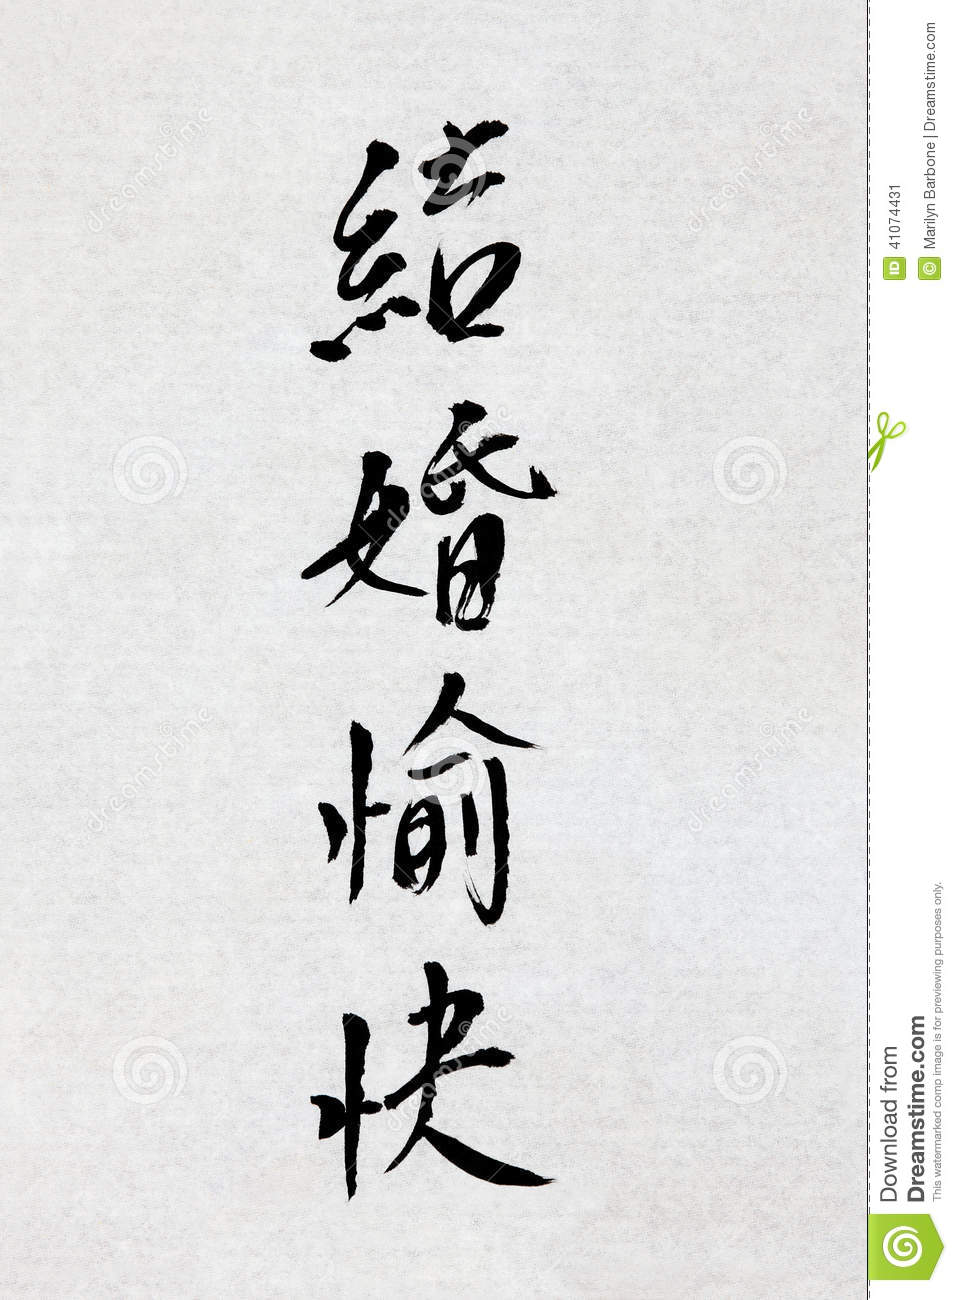 結婚愉快
dreamstime
dreamstime
dreamstime
dreamstime
dreamstime
dreamstime
dreamstime
ID 41074431
© Marilyn Barbone | Dreamstime.com
Download from
Dreamstime.com
This watermarked comp image is for previewing purposes only.